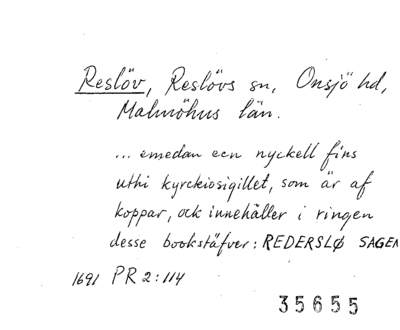 Reslöv, Reslövs sn, Onsjö hd,
Malmöhus län.
... emedan een nyckell fins
uthi kyrckiosigillet, som är af
koppar, ock innehåller i ringen
desse bookstäfver: REDERSLØ SAGEN
1691 PR 2:114
35655